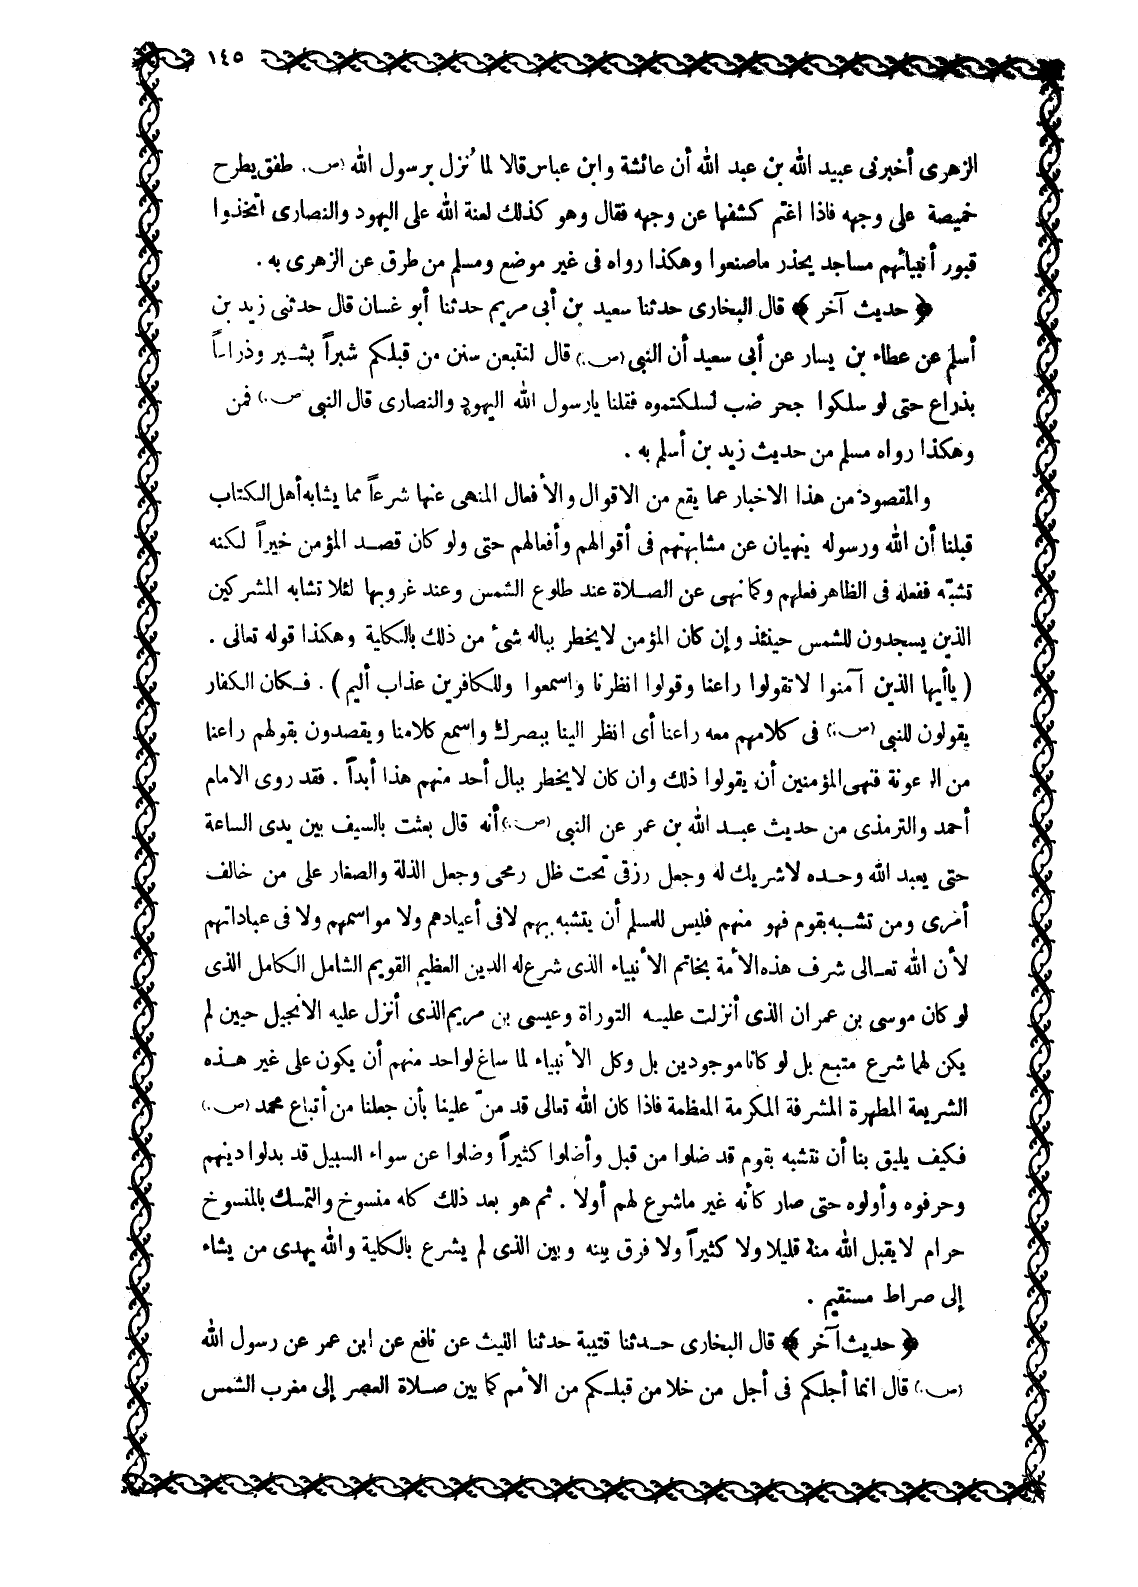 ١٤٥
الزهرى أخبرنى عبيد الله بن عبد الله أن عائشة وابن عباس قالا لما نُزل برسول الله (ص) طفق يطرح
خميصة على وجهه فاذا اغتم كشفها عن وجهه فقال وهو كذلك لعنة الله على اليهود والنصارى اتخذوا
قبور أنبيائهم مساجد يحذر ماصنعوا وهكذا رواه فى غير موضع ومسلم من طرق عن الزهرى به .
﴿ حديث آخر ﴾ قال البخارى حدثنا سعيد بن أبى مريم حدثنا أبو غسان قال حدثنى زيد بن
أسلم عن عطاء بن يسار عن أبى سعيد أن النبى (ص) قال لتتبعن سنن من قبلكم شبراً بشبر وذراعاً
بذراع حتى لو سلكوا جحر ضب لسلكتموه فقلنا يارسول الله اليهود والنصارى قال النبى (ص) فمن
وهكذا رواه مسلم من حديث زيد بن أسلم به .
والمقصود من هذا الاخبار عما يقع من الاقوال والأفعال المنهى عنها شرعاً مما يشابه أهل الكتاب
قبلنا أن الله ورسوله ينهيان عن مشابهتهم فى أقوالهم وأفعالهم حتى ولو كان قصد المؤمن خيراً لكنه
تشبّه ففعله فى الظاهر فعلهم وكما نهى عن الصلاة عند طلوع الشمس وعند غروبها لئلا تشابه المشركين
الذين يسجدون للشمس حينئذ وإن كان المؤمن لايخطر بباله شئ من ذلك بالكلية وهكذا قوله تعالى .
( ياأيها الذين آمنوا لاتقولوا راعنا وقولوا انظرنا واسمعوا وللكافرين عذاب أليم ) . فكان الكفار
يقولون للنبى (ص) فى كلامهم معه راعنا أى انظر الينا ببصرك واسمع كلامنا ويقصدون بقولهم راعنا
من الرعونة فنهى المؤمنين أن يقولوا ذلك وان كان لايخطر ببال أحد منهم هذا أبداً . فقد روى الامام
أحمد والترمذى من حديث عبد الله بن عمر عن النبى (ص) أنه قال بعثت بالسيف بين يدى الساعة
حتى يعبد الله وحده لاشريك له وجعل رزقى تحت ظل رمحى وجعل الذلة والصغار على من خالف
أمرى ومن تشبه بقوم فهو منهم فليس للمسلم أن يتشبه بهم لافى أعيادهم ولا مواسمهم ولا فى عباداتهم
لأن الله تعالى شرف هذه الأمة بخاتم الأنبياء الذى شرع له الدين العظيم القويم الشامل الكامل الذى
لو كان موسى بن عمران الذى أنزلت عليه التوراة وعيسى بن مريم الذى أنزل عليه الانجيل حيين لم
يكن لهما شرع متبع بل لو كانا موجودين بل وكل الأنبياء لما ساغ لواحد منهم أن يكون على غير هذه
الشريعة المطهرة المشرفة المكرمة المعظمة فاذا كان الله تعالى قد منّ علينا بأن جعلنا من أتباع محمد (ص)
فكيف يليق بنا أن نتشبه بقوم قد ضلوا من قبل وأضلوا كثيراً وضلوا عن سواء السبيل قد بدلوا دينهم
وحرفوه وأولوه حتى صار كأنه غير ماشرع لهم أولا . ثم هو بعد ذلك كله منسوخ والتمسك بالمنسوخ
حرام لايقبل الله منه قليلا ولا كثيراً ولا فرق بينه وبين الذى لم يشرع بالكلية والله يهدى من يشاء
إلى صراط مستقيم .
﴿ حديث آخر ﴾ قال البخارى حدثنا قتيبة حدثنا الليث عن نافع عن ابن عمر عن رسول الله
(ص) قال انما أجلكم فى أجل من خلا من قبلكم من الأمم كما بين صلاة العصر إلى مغرب الشمس